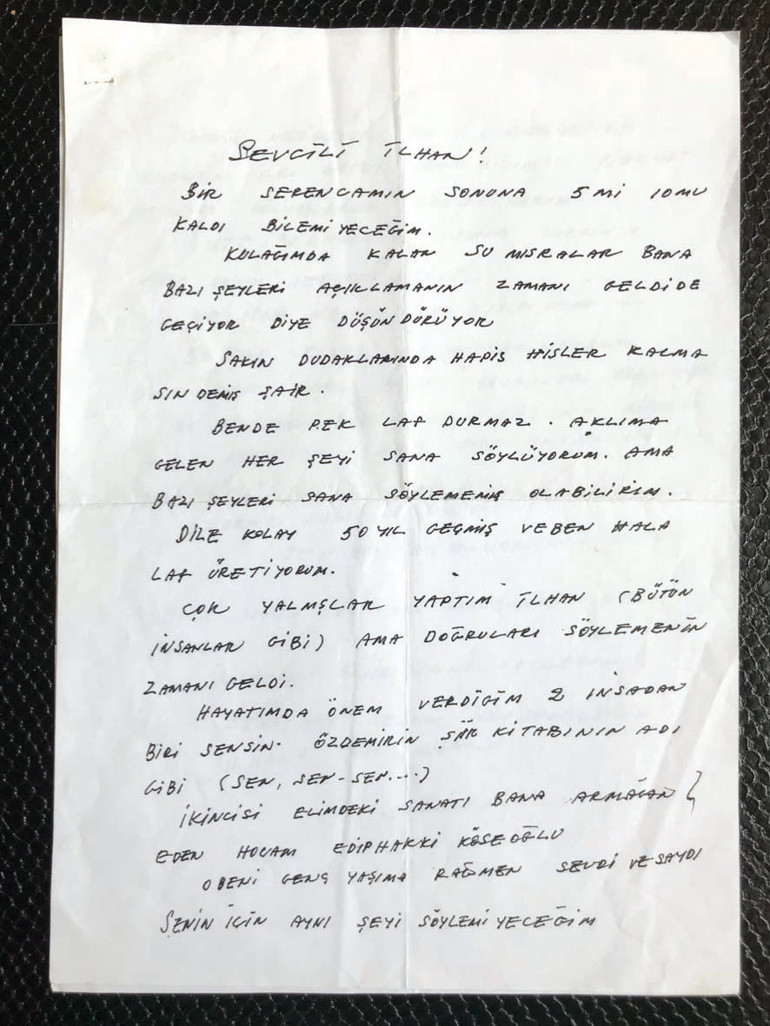 SEVGİLİ İLHAN!
BİR SERENCAMIN SONUNA 5 Mİ 10MU
KALDI BİLEMİYECEĞİM.
KULAĞIMDA KALAN SU MISRALAR BANA
BAZI ŞEYLERİ AÇIKLAMANIN ZAMANI GELDİDE
GEÇİYOR DİYE DÜŞÜNDÜRÜYOR
SAKIN DUDAKLARINDA HAPİS HİSLER KALMA
SIN DEMİŞ ŞAİR.
BENDE PEK LAF DURMAZ. AKLIMA
GELEN HER ŞEYİ SANA SÖYLÜYORUM. AMA
BAZI ŞEYLERİ SANA SÖYLEMEMİŞ OLABİLİRİM.
DİLE KOLAY 50 YIL GEÇMİŞ VEBEN HALA
LAF ÜRETİYORUM.
ÇOK YALNIŞLAR YAPTIM İLHAN (BÜTÜN
İNSANLAR GİBİ) AMA DOĞRULARI SÖYLEMENİN
ZAMANI GELDİ.
HAYATIMDA ÖNEM VERDİGİM 2 İNSADAN
BİRİ SENSİN. ÖZDEMİRİN ŞİİR KİTABININ ADI
GİBİ (SEN, SEN-SEN....)
İKİNCİSİ ELİMDEKİ SANATI BANA ARMAĞAN }
EDEN HOCAM EDİPHAKKI KÖSEOĞLU
O BENİ GENÇ YAŞIMA RAĞMEN SEVDİ VE SAYDI
SENİN İÇİN AYNI ŞEYİ SÖYLEMİYECEĞİM